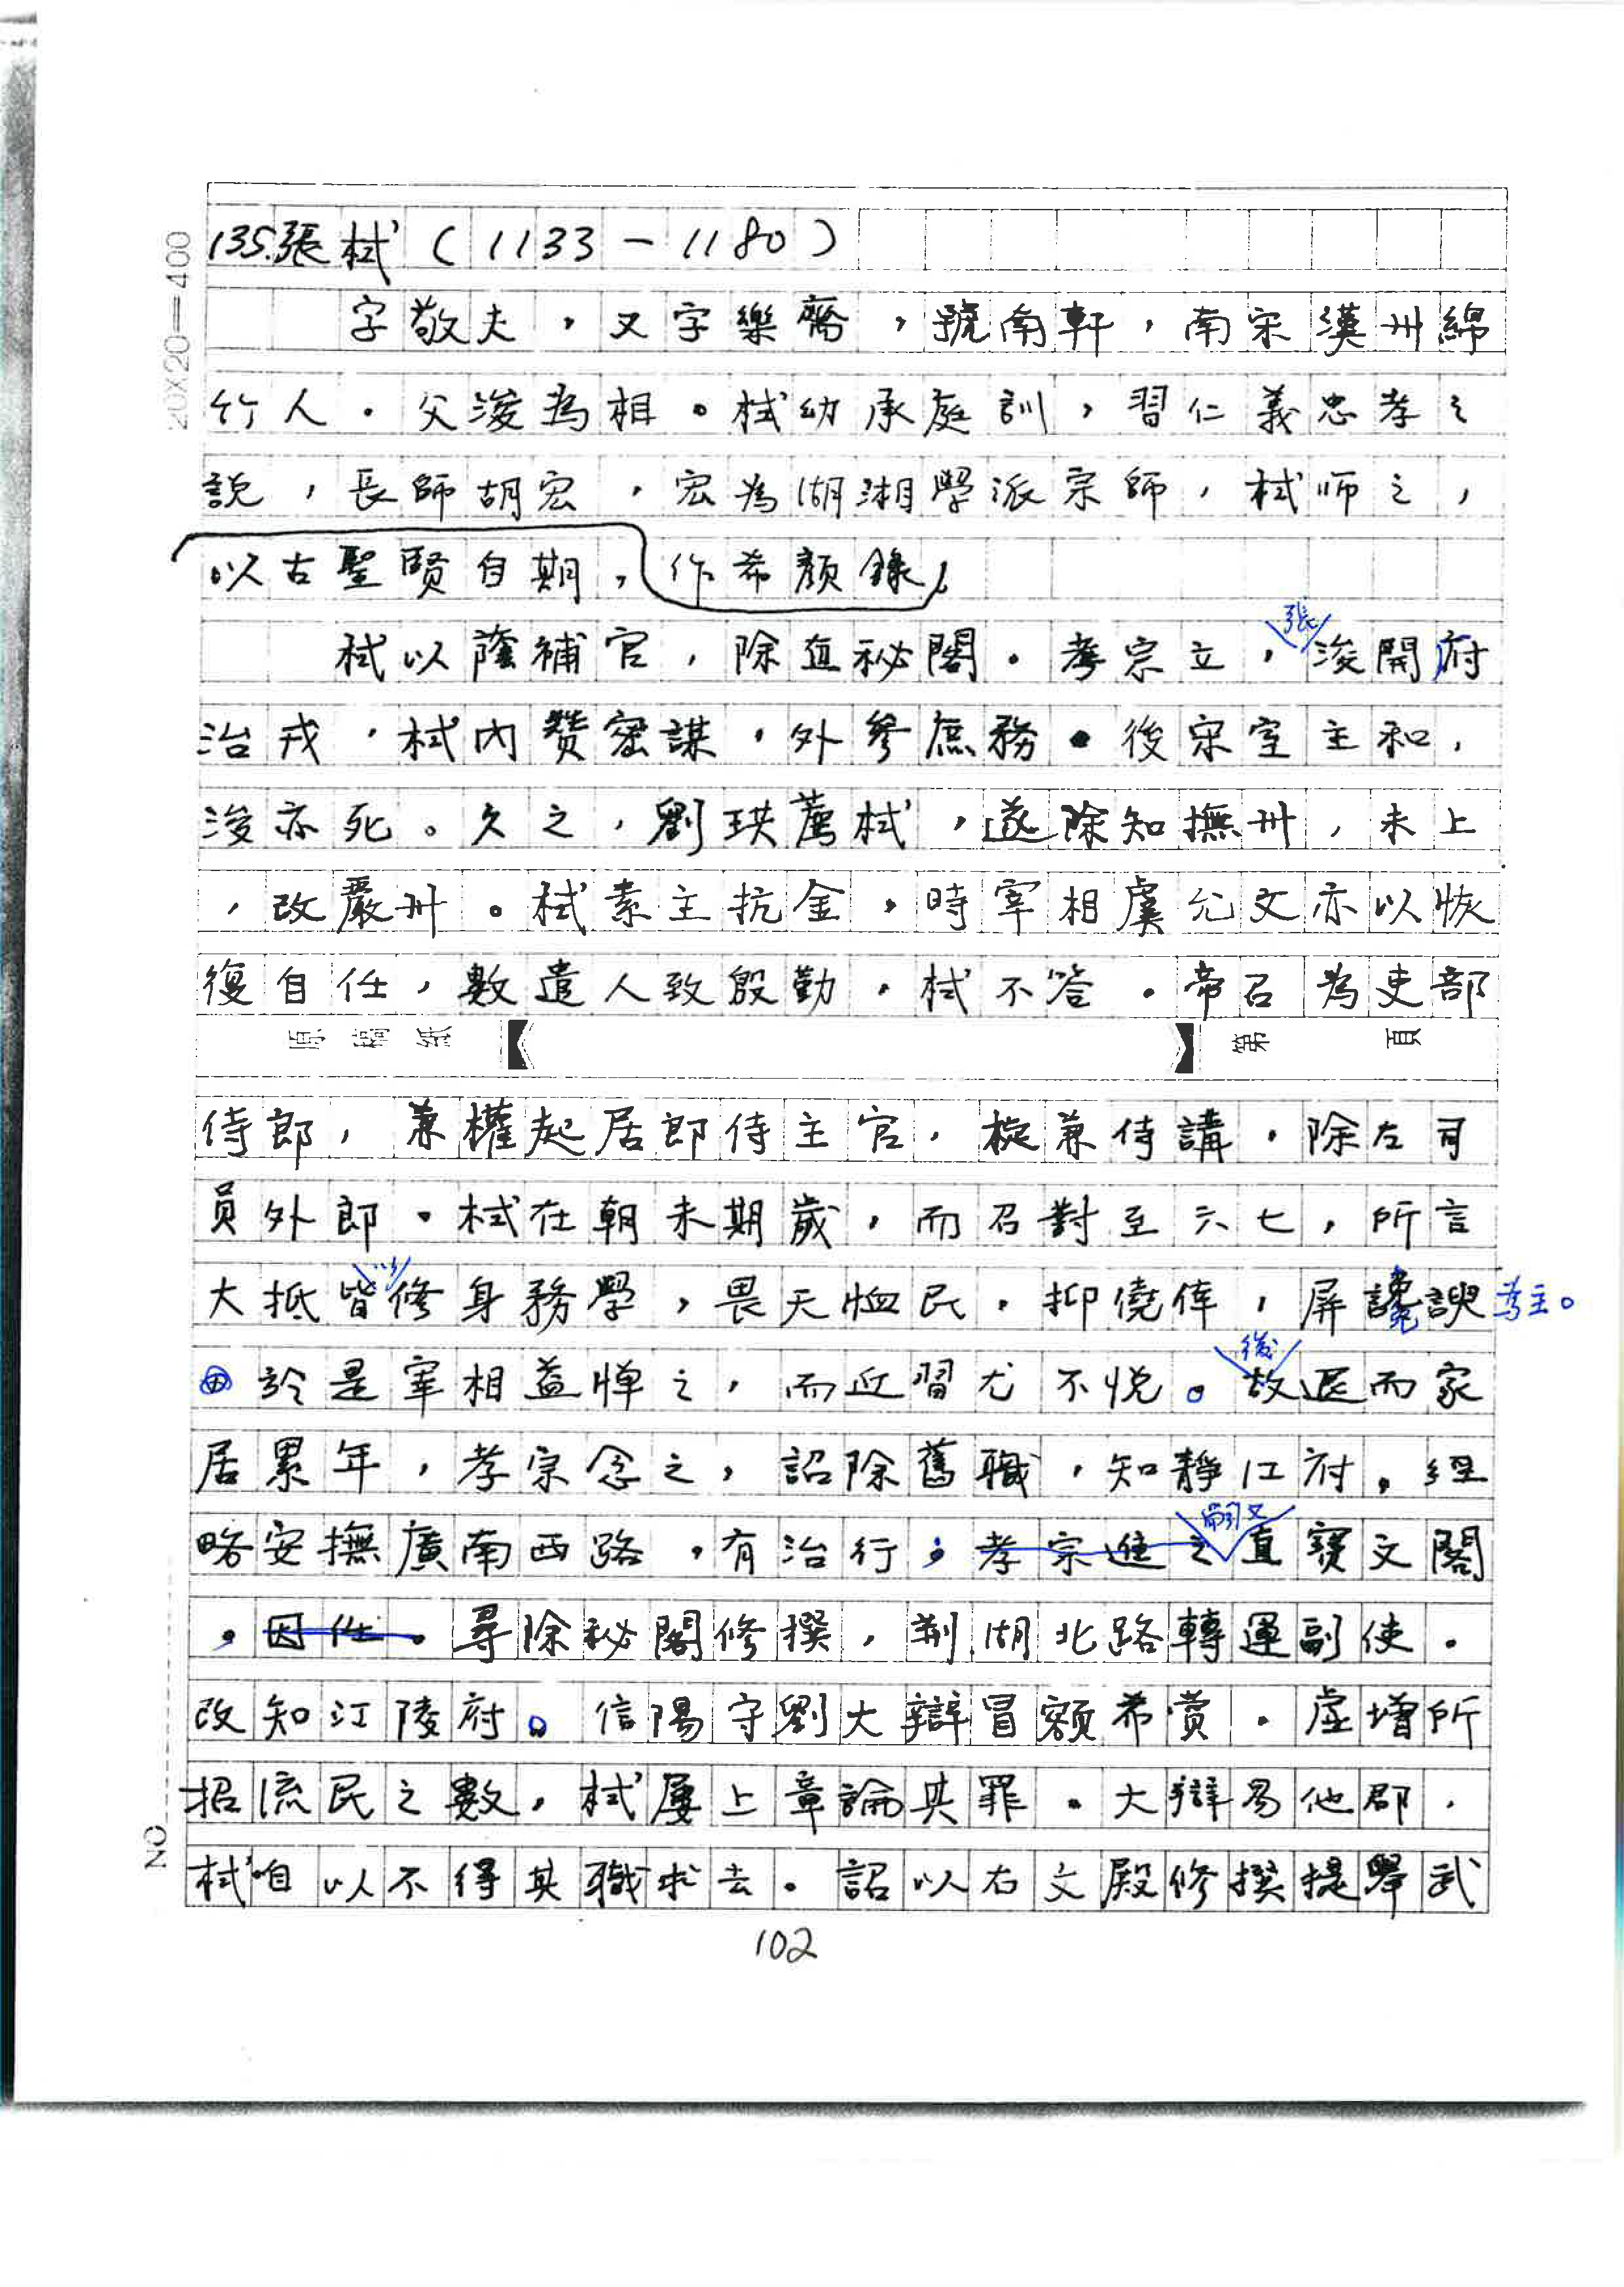 135.張栻(1133-1180)
字敬夫,又字樂齋,號南軒,南宋漢州綿
竹人。父浚為相。栻幼承庭訓,習仁義忠孝之
說,長師胡宏,宏為湖湘學派宗師,栻師之,
以古聖賢自期,作希顏錄。
栻以蔭補官,除直秘閣。孝宗立,張浚開府
治戎,栻內贊密謀,外參庶務。後宋室主和,
浚亦死。久之,劉珙薦栻,遂除知撫州,未上
,改嚴州。栻素主抗金,時宰相虞允文亦以恢
復自任,數遣人致殷勤,栻不答。帝召為吏部
原稿紙 第 頁
侍郎,兼權起居郎侍主官,旋兼侍講,除左司
員外郎。栻在朝未期歲,而召對至六七,所言
大抵皆以修身務學,畏天恤民,抑僥倖,屏讒諛為主。
於是宰相益憚之,而近習尤不悅。後故退而家
居累年,孝宗念之,詔除舊職,知靜江府,經
略安撫廣南西路,有治行,孝宗進之嗣又直寶文閣
,因任。尋除秘閣修撰,荊湖北路轉運副使。
改知江陵府。信陽守劉大辯冒額希賞,虛增所
招流民之數,栻屢上章論其罪。大辯易他郡,
栻自以不得其職求去。詔以右文殿修撰提舉武
102
20X20=400
NO